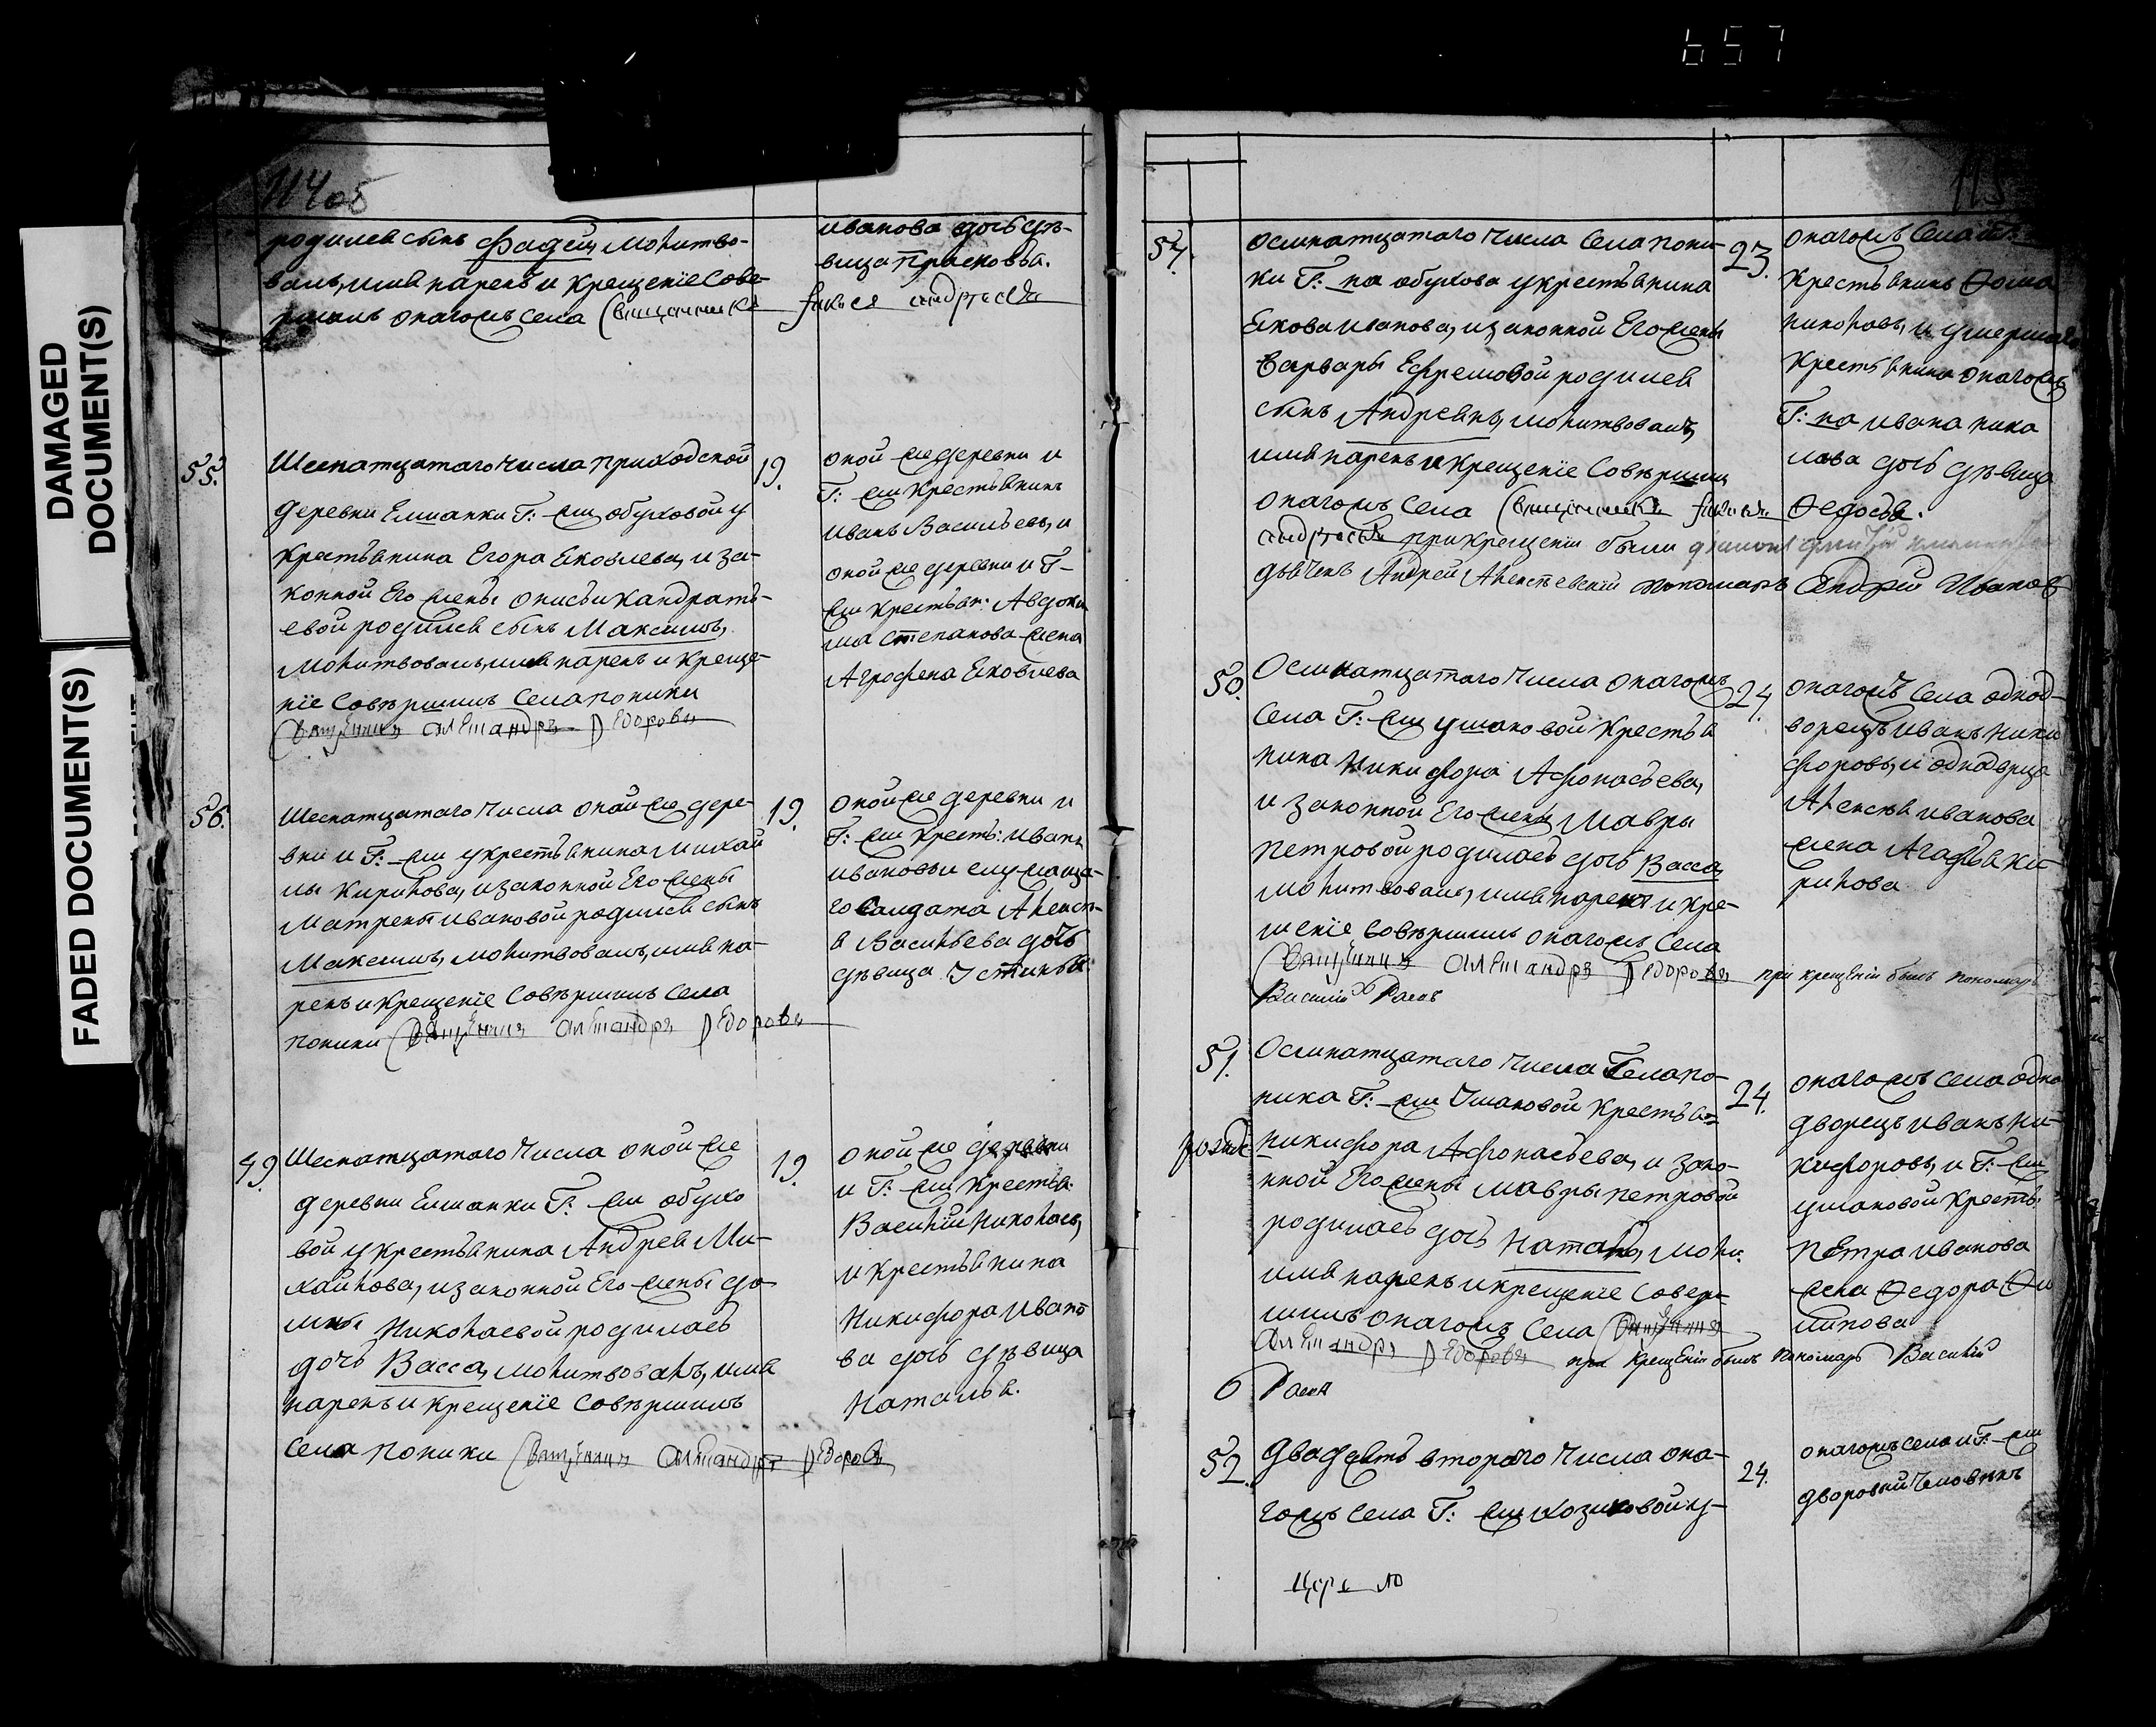 657
DAMAGED
DOCUMENT(S)
FADED DOCUMENT(S)
114об
родился сынъ Фадей, молитво-
валъ, имя нарекъ и крещенїе Сове-
ршилъ онагожъ села Священникъ Яковъ Андреевъ
иванова дочь дѣ-
вица Прасковья.
55.
Шеснатцатаго числа приходской
деревни Елшанки Г: жи обуховой у
крестьянина Егора Яковлева, и за-
конной Его жены Анисьи Кандрать-
евой родился сынъ Максимъ,
молитвовалъ, имя нарекъ и креще-
нїе Совѣршилъ Села поники
Священникъ Алеѯандръ Ѳедоровъ
19.
оной же деревни и
Г: жи крестьянинъ
иванъ Васильевъ, и
оной же деревни и Г-
жи крестьян: Авдоки
ма степанова жена
Агрофена Яковлева
56.
Шеснатцатаго числа оной же дере-
вни и Г: жи у крестьянина михай
лы Кирилова, и законной Его жены
матрены ивановой родился сынъ
Максимъ, молитвовалъ, имя на-
рекъ и крещенїе Совѣршилъ Села
поники Священникъ Алеѯандръ Ѳедоровъ
19.
оной же деревни и
Г: жи кресть: иванъ
ивановъ и служаща-
го салдата Алексѣ-
я Васильева дочь
дѣвица Устинья.
49.
Шеснатцатаго числа оной же
деревни Елшанки Г: жи обухо
вой у крестьянина Андрея Ми-
хайлова, и законной Его жены до
мны Николаевой родилась
дочь Васса, молитвовалъ, имя
нарекъ и крещенїе Совѣршилъ
Села поники Священникъ Алеѯандръ Ѳедоровъ
19.
оной же деревни
и Г: жи крестья:
Василїй Николаевъ,
и крестьянина
Никифора ивано
ва дочь дѣвица
Наталья.
115
57.
осмнатцатаго числа Села пони-
ки Г: на обухова у крестьянина
Якова иванова, и законной Его жены
варвары Ефремовой родился
сынъ Андреянъ, молитвовалъ,
имя нарекъ и крещенїе Совѣршилъ
онагожъ села Священникъ Яковъ
Андреевъ при крещенїи были
дьячекъ Андрей Алексѣевский пономарь Андрей Иванов
23.
онагожъ Села
крестьянинъ Ѳома
никоновъ, и умершаго
крестьянина онагожъ
Г: на ивана нико
лаева дочь дѣвица
Ѳедосья.
50.
Осмнатцатаго числа онагожъ
Села Г: жи ушаковой крестья
нина Никифора Афонасьева,
и законной Его жены мавры
петровой родилась дочь Васса,
молитвовалъ, имя нарекъ и кре-
щенїе совѣршилъ онагожъ Села
Священникъ Алеѯандръ Ѳедоровъ при крещенїи былъ пономарь
Василїй
24.
онагожъ Села однод-
ворецъ иванъ ники
форовъ, и однодврца
Алексѣя иванова
жена Агафья ки-
рилова
51.
Осмнатцатаго числа Села по-
ника Г: жи Ушаковой крестья=
никифора Афонасьева, и зако-
нной Его жены мавры петровой
родилась дочь Наталья, моли.
имя нарекъ и крещенїе Совер-
шилъ онагожъ Села Священникъ
Алеѯандръ Ѳедоровъ при крещенїи былъ пономарь Василїй
24.
онагожъ села одно
дворецъ иванъ ни-
кифоровъ, и Г: жи
ушаковой кресть:
Петра иванова
жена Ѳедора Ѳи
липова
52.
двадцать втораго числа она-
гожъ Села Г: жи Козиковой у-
24.
онагожъ села и Г: жи
дворовый человѣкъ